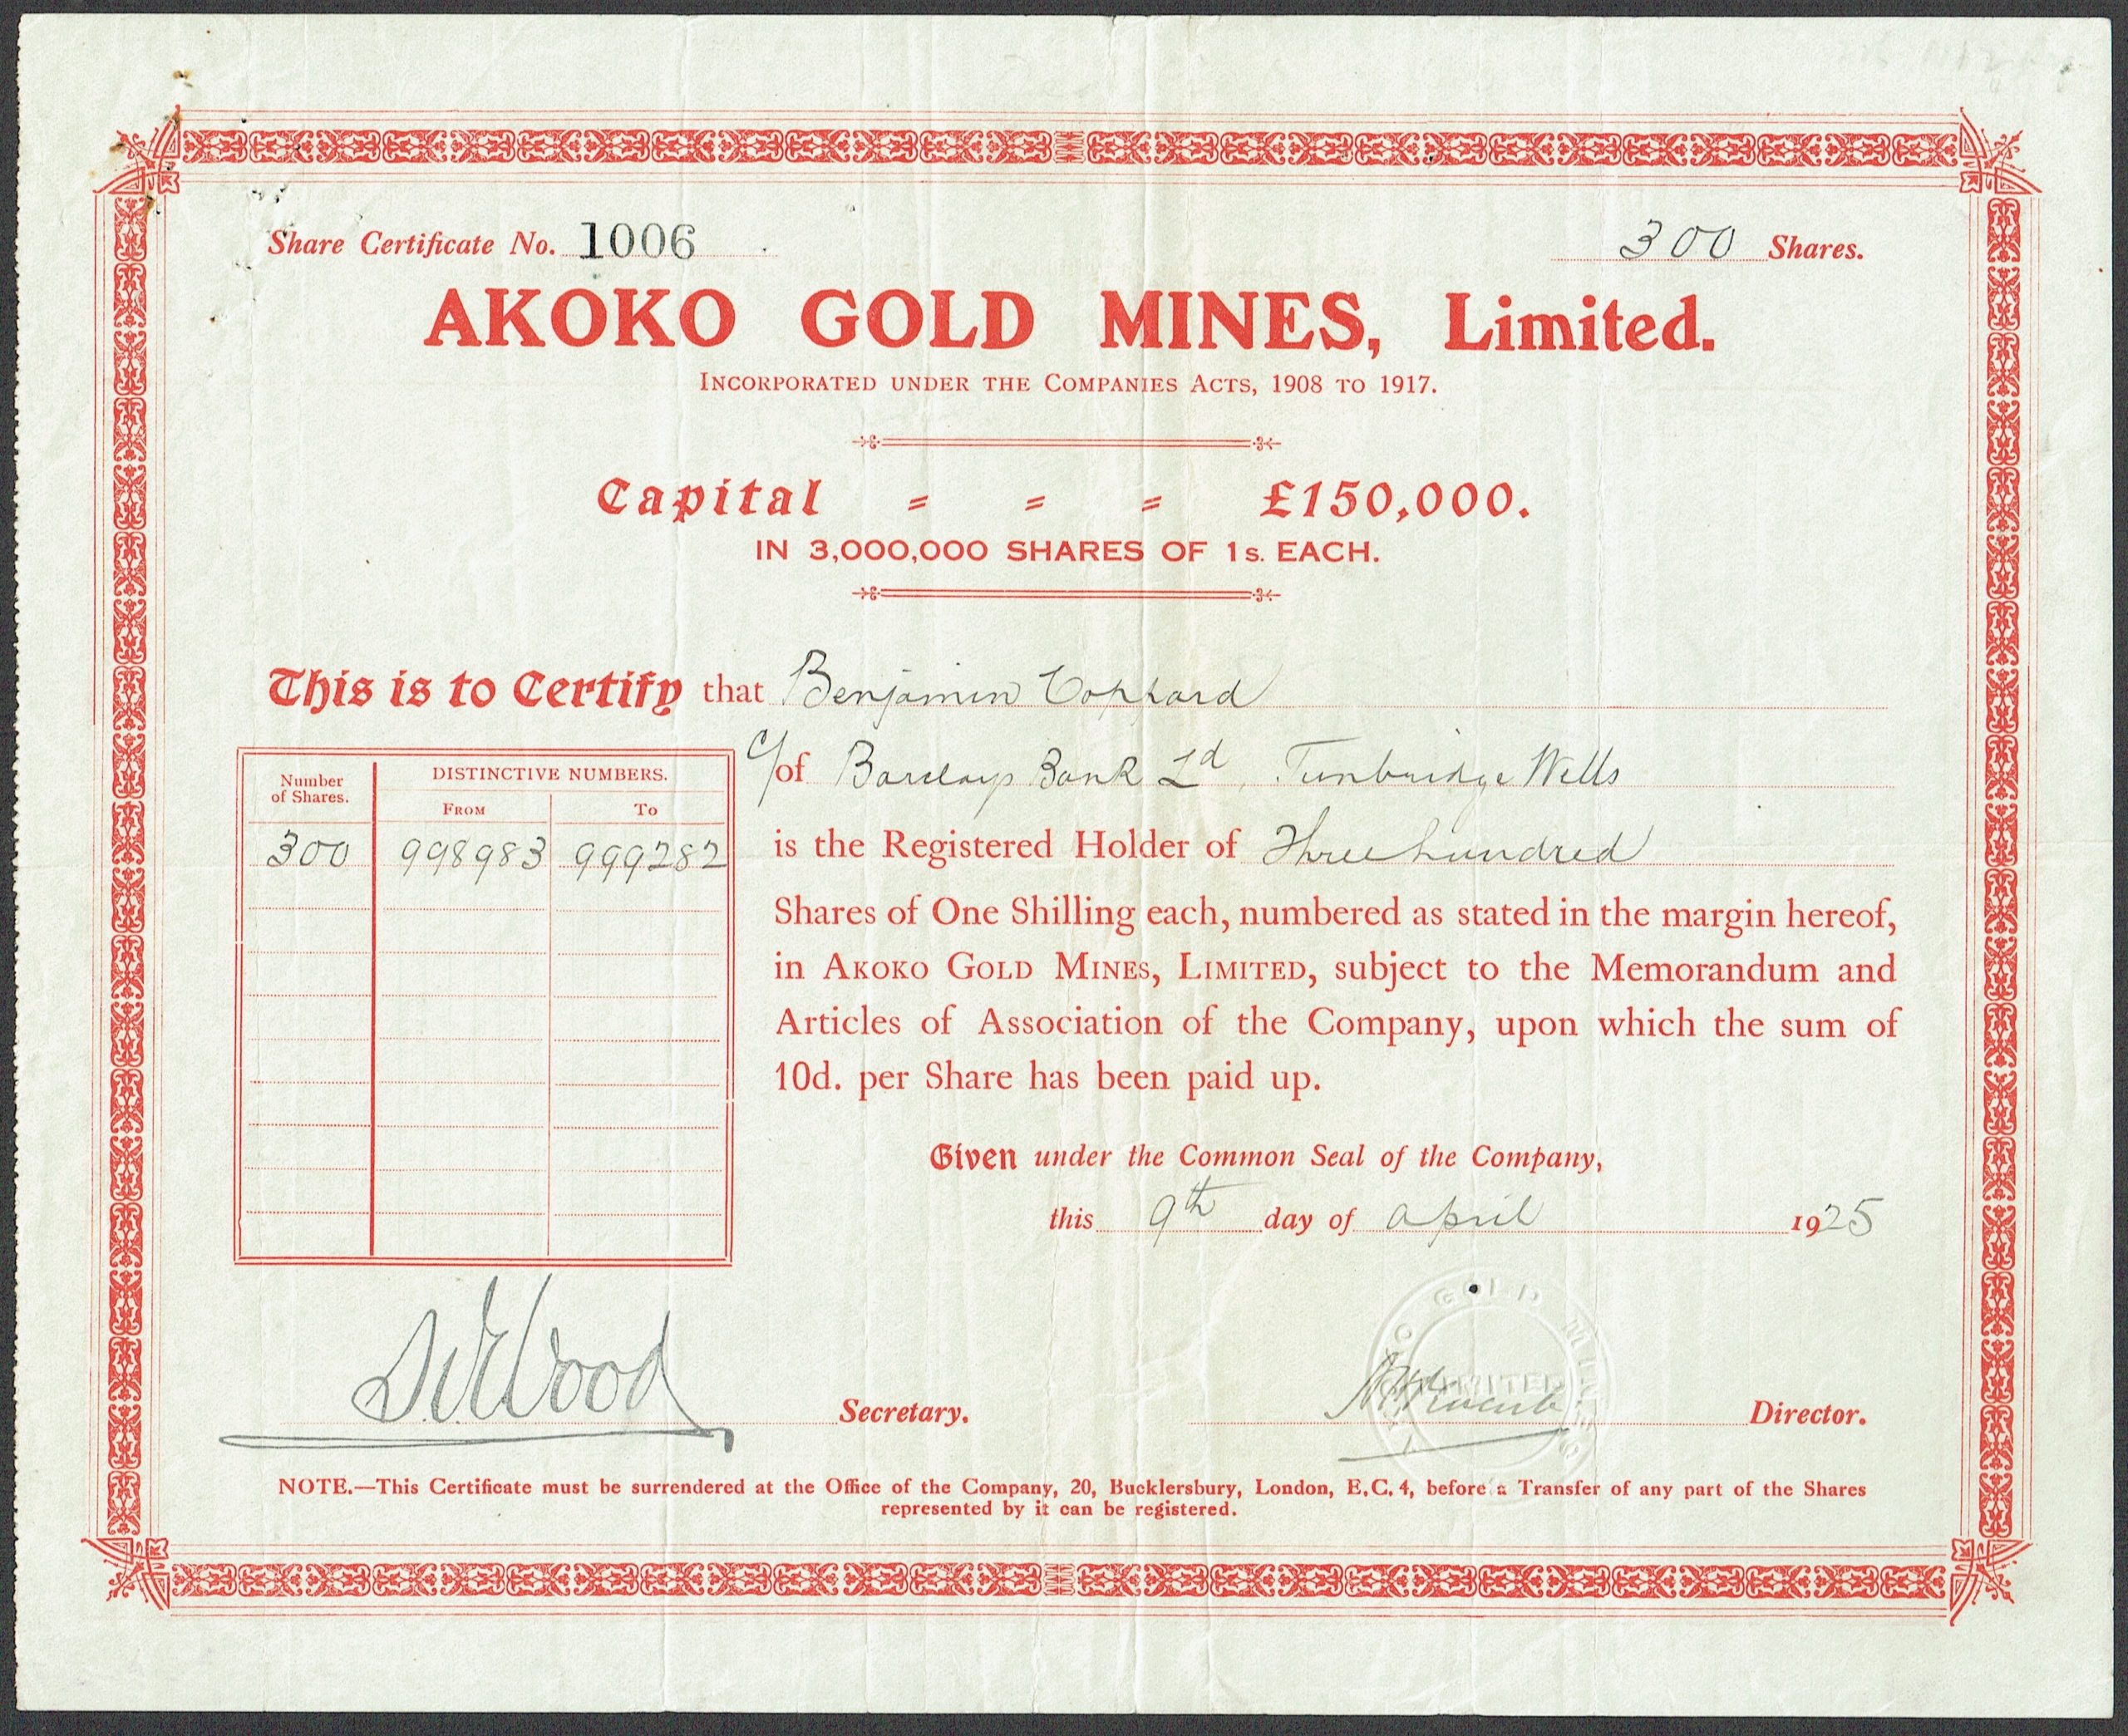 Share Certificate No. 1006
300 Shares.
AKOKO GOLD MINES, Limited.
INCORPORATED UNDER THE COMPANIES ACTS, 1908 TO 1917.
Capital = = = £150,000.
IN 3,000,000 SHARES OF 1s. EACH.
This is to Certify that Benjamin Coppard
c/of Barclays Bank Ld, Tunbridge Wells
is the Registered Holder of Three hundred
Shares of One Shilling each, numbered as stated in the margin hereof,
in AKOKO GOLD MINES, LIMITED, subject to the Memorandum and
Articles of Association of the Company, upon which the sum of
10d. per Share has been paid up.
Number of Shares.
DISTINCTIVE NUMBERS.
FROM To
300 998983 999282
Given under the Common Seal of the Company,
this 9th day of april 1925
Wood
Secretary.
AKOKO GOLD MINES
LIMITED
Director.
NOTE.—This Certificate must be surrendered at the Office of the Company, 20, Bucklersbury, London, E.C. 4, before a Transfer of any part of the Shares
represented by it can be registered.